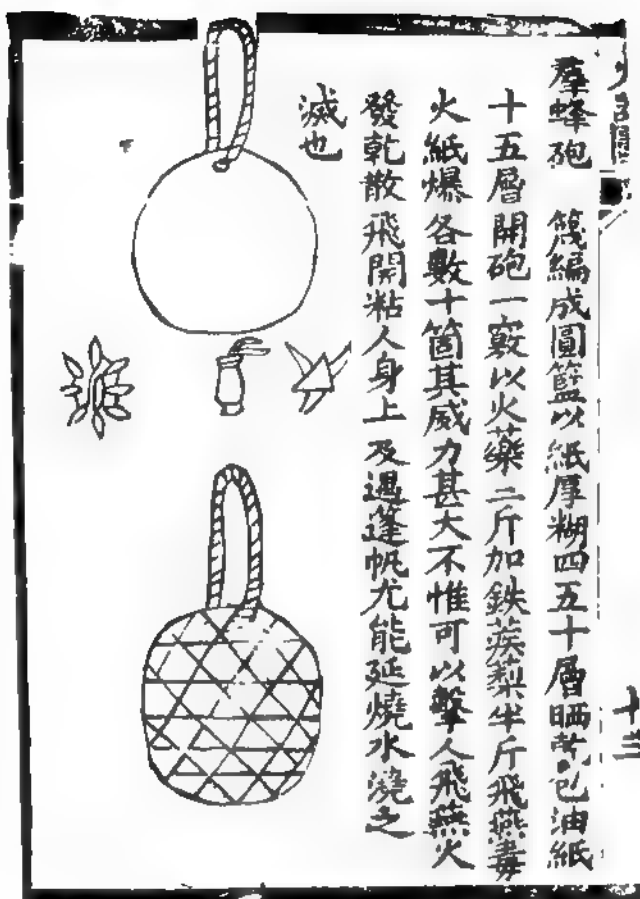 羣蜂砲　篾編成圓籃以紙厚糊四五十層晒乾包油紙
十五層開砲一竅以火藥二斤加鉄蒺藜半斤飛燕毒
火紙爆各數十箇其威力甚大不惟可以擊人飛燕火
發乾散飛開粘人身上及遇蓬帆尤能延燒水澆之
滅也
十三